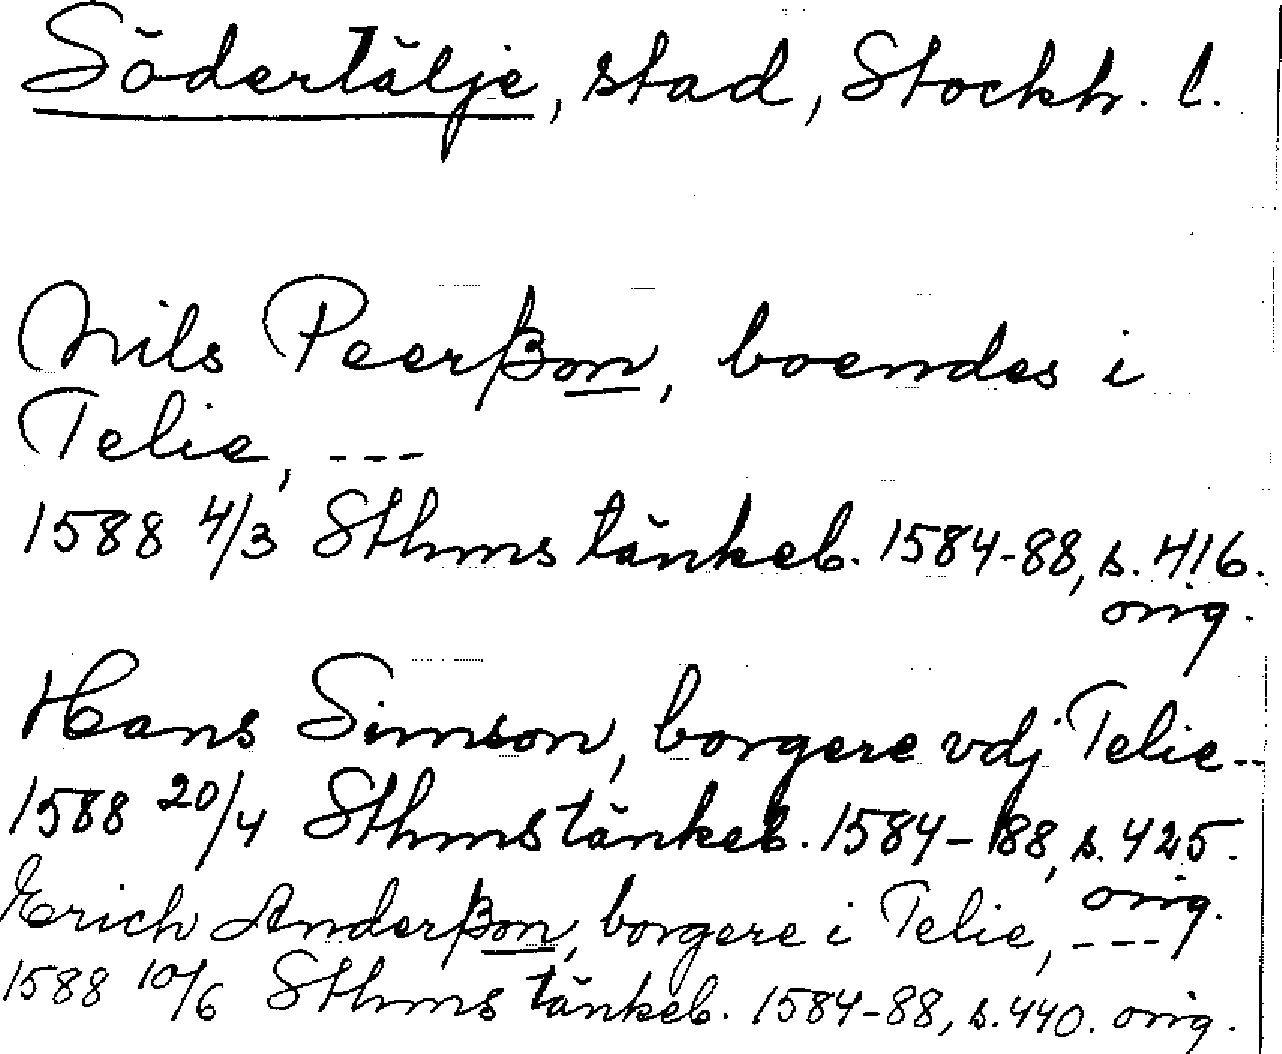 Södertälje, stad, Stockh. l.
Nils Peerßon, boendes i
Telie, ---
1588 4/3 Sthms tänkeb. 1584-88, s. 416.
orig.
Hans Simson, borgere vdj Telie--
1588 20/4 Sthms tänkeb. 1584-88, s. 425.
orig.
Erich Anderßon, borgere i Telie, ---
1588 10/6 Sthms tänkeb. 1584-88, s. 440. orig.